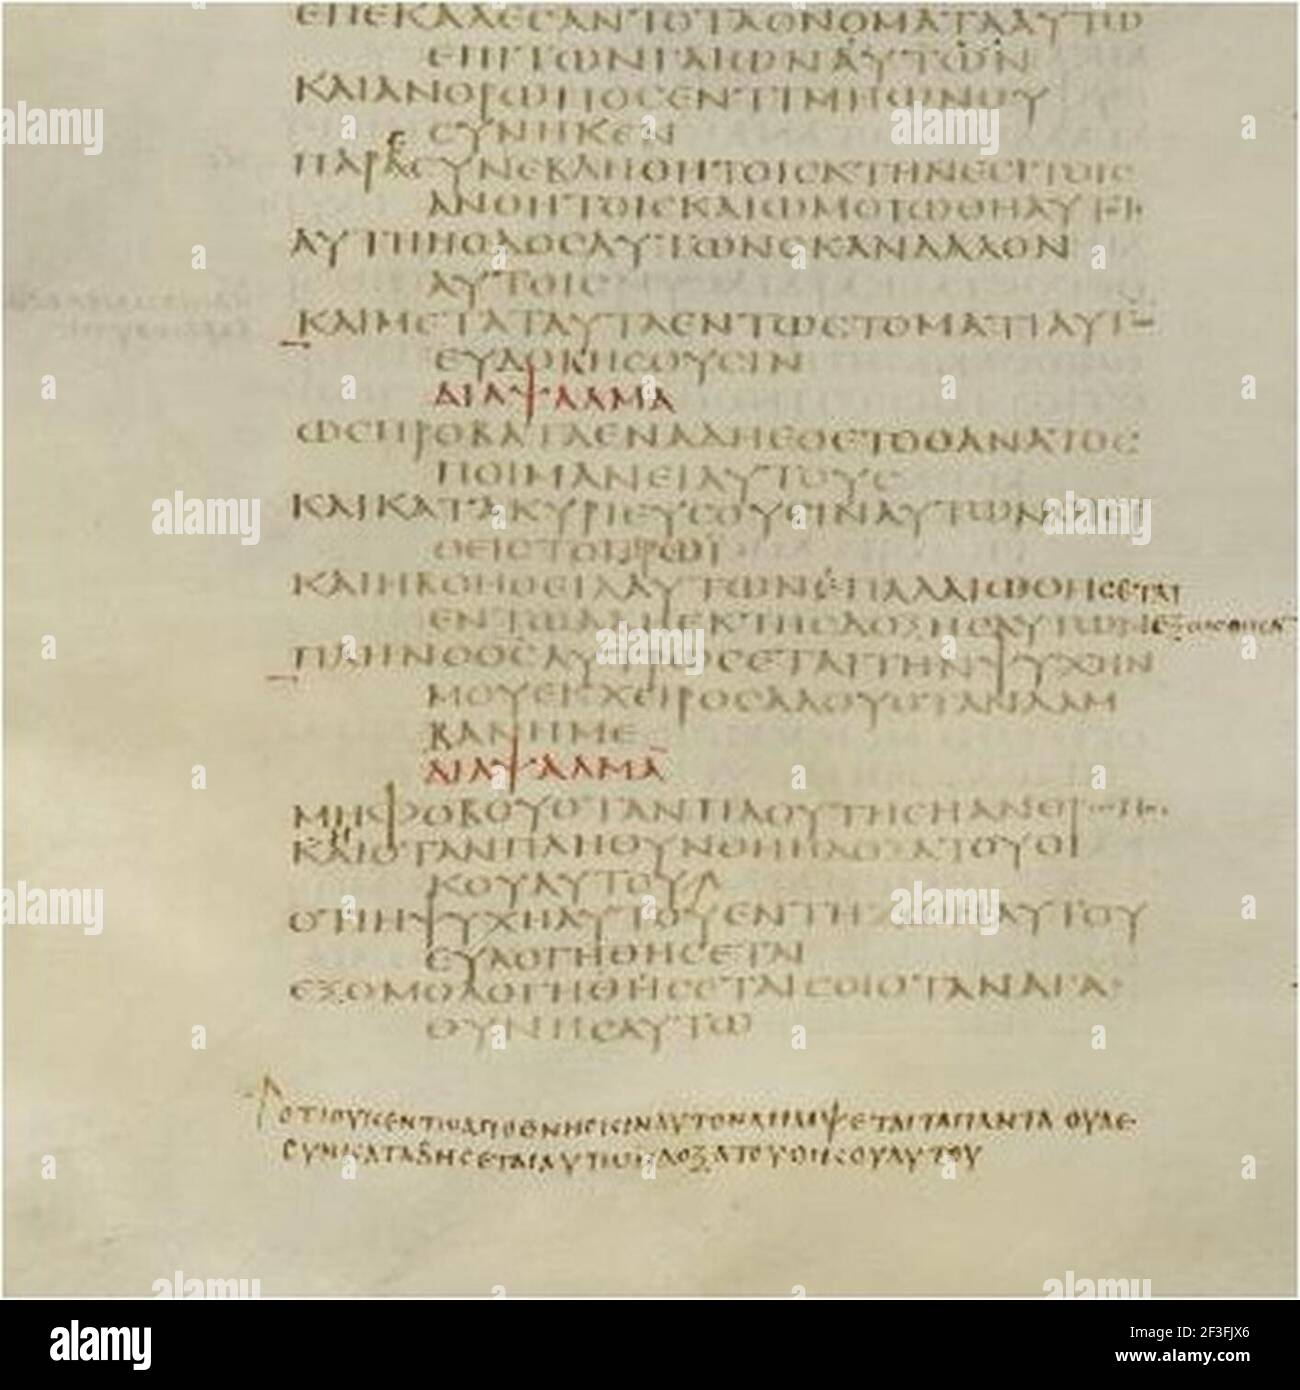 ΕΠΕΚΑΛΕΣΑΝΤΟΤΑΟΝΟΜΑΤΑΑΥΤΩ
ΕΠΙΤΩΝΓΑΙΩΝΑΥΤΩΝ
ΚΑΙΑΝΟΡΩΠΟΣΕΝΤΙΜΗΩΝΟΥ
ΣΥΝΗΚΕΝ
ΠΑΡΑΣΥΝΕΒΛΗΘΗΤΟΙΣΚΤΗΝΕΣΙΤΟΙΣ
ΑΝΟΗΤΟΙΣΚΑΙΩΜΟΙΩΘΗΑΥΤΟΙ
ΑΥΤΗΗΟΔΟΣΑΥΤΩΝΣΚΑΝΔΑΛΟΝ
ΑΥΤΟΙΣ
ΚΑΙΜΕΤΑΤΑΥΤΑΕΝΤΩΣΤΟΜΑΤΙΑΥΤ
ΕΥΔΟΚΗΣΟΥΣΙΝ
ΔΙΑΨΑΛΜΑ
ΩΣΠΡΟΒΑΤΑΕΝΑΔΗΕΘΕΤΟΘΑΝΑΤΟΣ
ΠΟΙΜΑΝΕΙΑΥΤΟΥΣ
ΚΑΙΚΑΤΑΚΥΡΙΕΥΣΟΥΣΙΝΑΥΤΩΝΟΙΕΥ
ΘΕΙΣΤΟΠΡΩΙ
ΚΑΙΗΒΟΗΘΕΙΑΑΥΤΩΝΕΠΑΛΑΙΩΘΗΣΕΤΑΙ
ΕΝΤΩΑΔΗΕΚΤΗΣΔΟΞΗΣΑΥΤΩΝ
ΠΛΗΝΟΘΣΛΥΤΡΩΣΕΤΑΙΤΗΝΨΥΧΗΝ
ΜΟΥΕΚΧΕΙΡΟΣΑΔΟΥΟΤΑΝΛΑΜ
ΒΑΝΗΜΕ
ΔΙΑΨΑΛΜΑ
ΜΗΦΟΒΟΥΟΤΑΝΠΛΟΥΤΗΣΗΑΝΘΡΩΠΟΣ
ΚΑΙΟΤΑΝΠΛΗΘΥΝΘΗΗΔΟΞΑΤΟΥΟΙ
ΚΟΥΑΥΤΟΥ
ΟΤΙΗΨΥΧΗΑΥΤΟΥΕΝΤΗΖΩΗΑΥΤΟΥ
ΕΥΛΟΓΗΘΗΣΕΤΑΙ
ΕΞΟΜΟΛΟΓΗΘΗΣΕΤΑΙΣΟΙΟΤΑΝΑΓΑ
ΘΥΝΗΣΑΥΤΩ
ΟΤΙΟΥΚΕΝΤΩΑΠΟΘΝΗΣΚΙΝΑΥΤΟΝΛΗΜΨΕΤΑΙΤΑΠΑΝΤΑ ΟΥΔΕ
ΣΥΝΚΑΤΑΒΗΣΕΤΑΙΑΥΤΩΗΔΟΞΑΤΟΥΟΙΚΟΥΑΥΤΟΥ
alamy
Image ID: 2F3FJX6
www.alamy.com